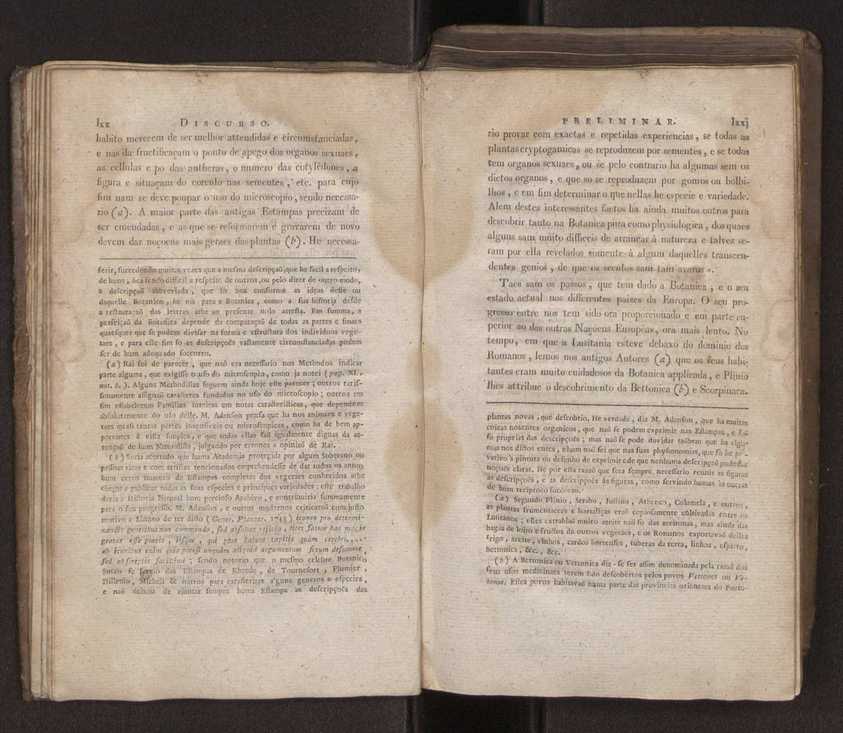 lxx DISCURSO.
habito merecem de ser melhor attendidas e circumstanciadas,
e nas da fructificaçam o ponto de apego dos organos sexuaes,
as cellulas e po das antheras, o numero das cotylédones, a
figura e situaçam do corculo nas sementes, etc. para cujo
fim nam se deve poupar o uso do microscopio, sendo necessa-
rio (a). A maior parte das antigas Estampas precizam de
ser emendadas, e as que se reformarem e gravarem de novo
devem dar noçoens mais geraes das plantas (b). He necessa-
ferir, succedendo muitas vezes que a mesma descripçaõ, que he facil a respeito
de huns, seja difficil a respeito de outros, ou pelo dizer de outro modo,
a descripçaõ abbreviada, que he boa conforme as ideas deste ou
daquelle Botanico, he má para a Botanica, como a sua historia desde
a restauraçaõ das letras athe ao presente nolo attesta. Em summa, a
perfeiçaõ da Botanica depende da comparaçaõ de todas as partes e suas
qualidades que se podem divisar na forma e estructura dos individuos vege-
taes, e para este fim so as descripçoẽs vastamente circumstanciadas podem
ser de hum adequado soccorro.
(a) Rai foi de parecer, que naõ era necessario nos Methodos indicar
parte alguma, que exigisse o uso do microscopio, como ja notei (pag. XL,
not. b.). Alguns Methodistas seguem ainda hoje este parecer; outros raris-
simamente assignaõ caracteres fundados no uso do microscopio; outros em
fim estabelecem Familias inteiras em notas caracteristicas, que dependem
absolutamente do uso delle. M. Adanson pensa que ha nos animaes e vege-
taes quasi tantas partes insensiveis ou microscopicas, como ha de bem ap-
parentes á vista simples, e que todas ellas saõ igualmente dignas da at-
tençaõ de hum Naturalista, julgando por erronea a opiniaõ de Rai.
(b) Seria acertado que huma Academia protegida por algum Soberano ou
pessoas ricas e com acertos tencionados emprehendesse de dar todos os annos
hum certo numero de Estampas completas dos vegetaes conhecidos athe
chegar a publicar todas as suas especies e principaes variedades; este trabalho
daria á Historia Natural hum precioso Apoio, e contribuiria summamente
para o seu progresso. M. Adanson, e outros modernos criticaraõ com justo
motivo a Linneo de ter dito (Gener. Plantar. 1743) icones pro determi-
nandis generibus non commendo, sed absolute rejicio, licet fatear has magis
gratas esse pueris, iisque, qui plus habent capitis quam cerebri,....
ab iconibus enim quis potest unquam aliquod argumentum firmum desumere,
sed ab scriptis facilime; sendo notorio que o mesmo celebre Botanico
Sueco se servio das Estampas de Rheede, de Tournefort, Plumier,
Dillenio, Micheli & outros para caracterizar alguns generos e especies,
e naõ deixou de ajuntar sempre huma Estampa as descripçoẽs das
PRELIMINAR. lxxj
rio provar com exactas e repetidas experiencias, se todas as
plantas cryptogamicas se reproduzem por sementes, e se todas
tem organos sexuaes, ou se pelo contrario ha algumas sem os
dictos organos, e que so se reproduzem por gomos ou bolbi-
lhos, e em fim determinar o que nellas he especie e variedade.
Alem destes interessantes factos ha ainda muitos outros para
descobrir tanto na Botanica pura como physiologica, dos quaes
alguns sam muito difficeis de arrancar á natureza e talvez se-
ram por ella revelados somente á algum daquelles transcen-
dentes genios, de que os seculos sam tam avaros.
Taes sam os passos, que tem dado a Botanica, e o seu
estado actual nos differentes paises da Europa. O seu pro-
gresso entre nos tem sido ora proporcionado e em parte su-
perior ao das outras Naçoens Europeas, ora mais lento. No
tempo, em que a Lusitania esteve debaixo do dominio dos
Romanos, lemos nos antigos Autores (a) que os seus habi-
tantes eram muito cuidadosos da Botanica applicada, e Plinio
lhes attribue o descobrimento da Bettonica (b) e Scorpinaca.
plantas novas, que descobrio. He verdade, diz M. Adanson, que ha muitas
coizas nos entes organicos, que naõ se podem exprimir nas Estampas, e saõ
so proprias das descripçoẽs; mas naõ se pode duvidar taõbem que ha algu-
mas nos dictos entes, e hum naõ sei que nas suas physionomias, que so he pri-
vativo á pintura ou desenho de exprimir e de que nenhuma descripçaõ pode dar
noçoẽs claras. He por esta razaõ que sera sempre necessario reunir as figuras
as descripçoẽs, e as descripçoẽs as figuras, como servindo humas ás outras
de hum reciproco soccorro.
(a) Segundo Plinio, Strabo, Justino, Atheneo, Columela, e outros,
as plantas frumentaceas e hortaliças eraõ copiosamente cultivadas entre os
Lusitanos; elles extrahiaõ muito azeite naõ so das azeitonas, mas ainda das
bagas de buxo e fructos de outros vegetaes, e os Romanos exportavaõ delles
trigo, azeite, vinhos, cardos hortenses, tuberas da terra, linhos, esparto,
bettonica, &c., &c.
(b) A Bettonica ou Vettonica diz-se ser assim denominada pela razaõ dos
seus usos medicinaes serem taõ descobertos pelos povos Vettones ou Ve-
tones. Estes povos habitavaõ huma parte das provincias orientaes do Portu-